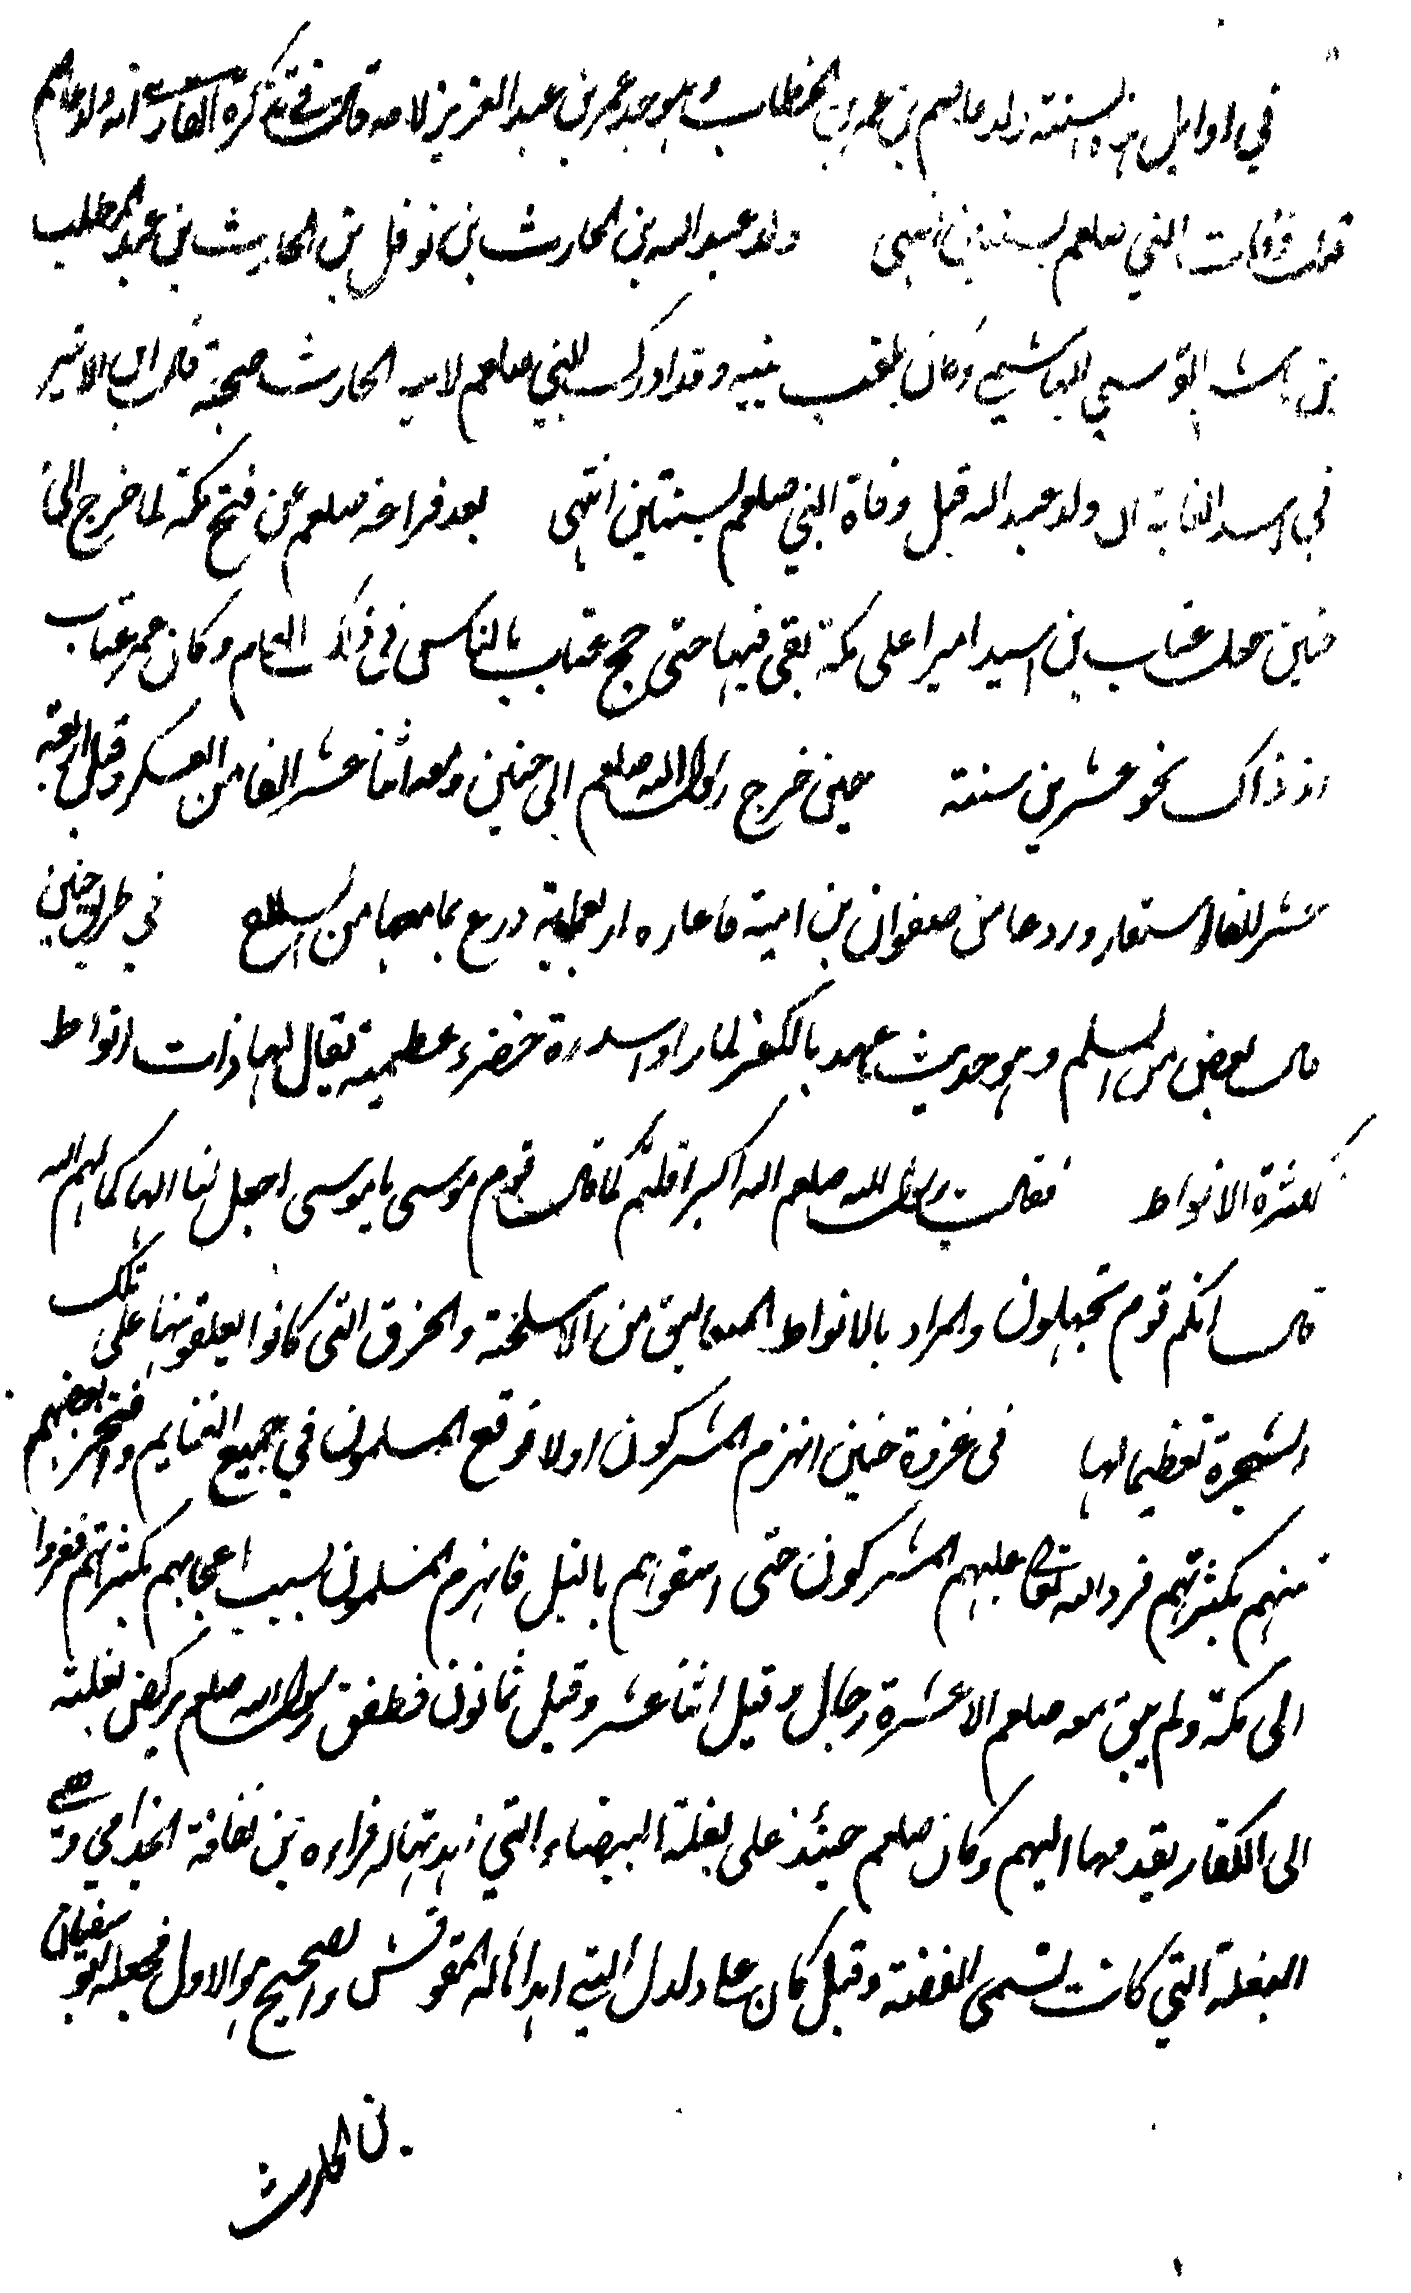 في اوايل هذه السنة ولد عاصم بن عمر بن الخطاب وهو جد عمر بن عبد العزيز لامه قال في تذكرة القاري انه ولد عاصم
قبل وفات النبي صلعم بسنتين انتهى ولد عبد الله بن الحارث بن نوفل بن الحارث بن عبد المطلب
بن هاشم القرشي الهاشمي وكان يلقب ببه وقد ادرك النبي صلعم لابيه الحارث صحبة قال ابن الاثير
في اسد الغابة ولد عبد الله قبل وفاة النبي صلعم بسنتين انتهى بعد فراغه صلعم عن فتح مكة لما خرج الى
حنين جعل عتاب بن اسيد اميرا على مكة بقى فيها حتى حج عتاب بالناس في ذلك العام وكان عمر عتاب
اذ ذاك نحو عشرين سنة حين خرج رسول الله صلعم الى حنين ومعه اثنا عشر الفا من العسكر وقيل اربعة
عشر الفا استعار دروعا من صفوان بن امية فاعاره اربعماية درع بما معها من السلاح في طريق حنين
قال بعض من اسلم وهو حديث عهد بالكفر لما راوا سدرة خضراء عظيمة يقال لها ذات انواط
لكثرة الانواط فقال رسول الله صلعم الله اكبر اقلتم كما قال قوم موسى يا موسى اجعل لنا الها كما لهم الهة
قال انكم قوم تجهلون والمراد بالانواط المعاليق من الاسلحة والخرق التي كانوا يعلقونها على تلك
الشجرة تعظيما لها في غزوة حنين انهزم المشركون اولا فوقع المسلمون في جميع الغنايم وافتخر بعضهم
منهم بكثرتهم فرد الله تعالى عليهم المشركون حتى رشقوهم بالنبل فانهزم المسلمون بسبب اعجابهم بكثرتهم ففروا
الى مكة ولم يبق معه صلعم الا عشرة رجال وقيل اثنا عشر وقيل ثمانون فطفق رسول الله صلعم يركض بغلته
الى الكفار يقدمها اليهم وكان صلعم حينئذ على بغلته البيضاء التي اهدتها له فراءه بن نفاثة الجذامي وهي
البغلة التي كانت تسمى الفضة وقيل كان على دلدل التي اهداها له المقوقس والصحيح هو الاول فجعله ابو سفيان
بن الحارث